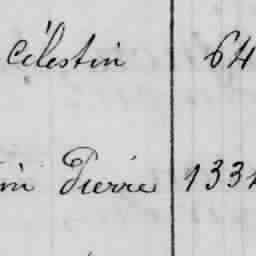 Célestin 64
Pierre 133